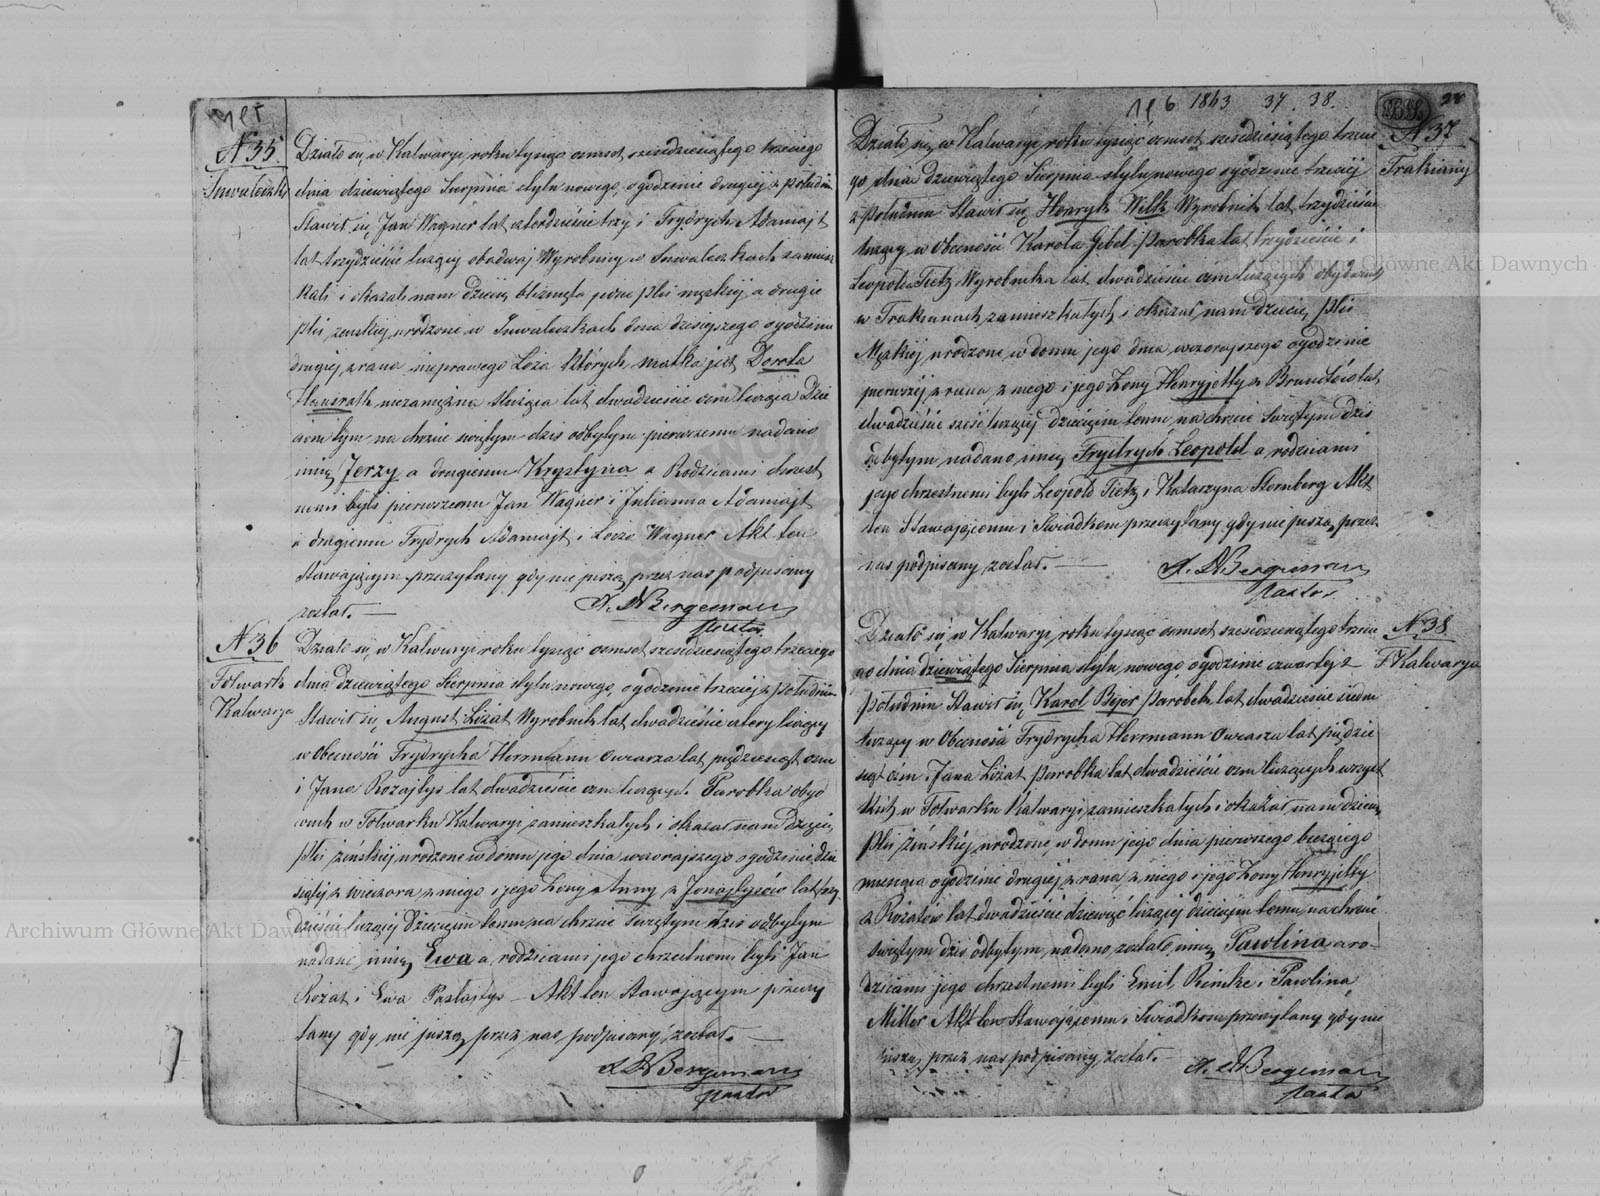 N 35
Suwaleszki
Działo się w Kalwaryi roku tysiąc osmset szesdziesiątego trzeciego
dnia dziewiątego Sierpnia stylu nowego, o godzinie drugiej z południa
Stawił się Jan Wagner lat czterdzieście trzy i Frydrych Adamajt
lat trzydzieście liczący obadwaj Wyrobnicy w Suwaleszkach zamiesz
kali i okazali nam dziecię bliznięta jedne płci męzkiej a drugie
płci zenskiej urodzone w Suwaleszkach dnia dzisiejszego o godzinie
drugiej z rana nieprawego Loża których matka jest Dorota
Hausrath niezamężna służąca lat dwadzieście osm licząca Dzie
ciom tym na chrzcie świętym dzis odbytym pierwszemu nadano
imię Jerzy a drugiemu Krystyna a Rodzicami chrzest
nemi byli pierwszemu Jan Wagner i Julianna Adamajt
a drugiemu Frydrych Adamajt i Loiza Wagner Akt ten
stawającym przeczytany gdy nie piszą przez nas podpisany
został.
A. W Bergemann
Pastor
N 36
Folwark
Kalwarya
Działo się w Kalwaryi roku tysiąc osmset szesdziesiątego trzeciego
dnia dziewiątego Sierpnia stylu nowego, o godzinie trzeciej z południa
Stawił się August Liżat Wyrobnik lat dwadzieście cztery liczący
w Obecności Frydrycha Herrmann Owczarza lat pięдziesiąt osm
i Jana Rozajtys lat dwadzieście osm liczących Parobka obyd
wuch w Folwarku Kalwaryi zamieszkałych i okazał nam Dziecię
płci żeńskiej urodzone w domu jego dnia wczorajszego o godzinie dzie
siątej z wieczora z niego i jego Żony Anny z Jonajtysów lat trzy
dzieści liczącej Dziecięciu temu na chrzcie Świętym dziś odbytym
nadano imię Ewa a rodzicami jego chrzestnemi byli Jan
Rożat i Ewa Paslajtys – Akt ten Stawającym przeczy
tany gdy nie piszą przez nas podpisany został. –
A. W Bergemann
Pastor
6 1863 37. 38.
N 37
Trakiany
Działo się w Kalwaryi roku tysiąc osmset szesdziesiątego trzecie
go dnia dziewiątego Sierpnia stylu nowego o godzinie trzeciej
z południa Stawił się Henryk Wilk Wyrobnik lat trzydzieście
liczący w Obecności Karola Gebel parobka lat trzydzieście i
Leopolda Tietz Wyrobnika lat dwadzieście osm liczących obydwuch
w Trakianach zamieszkałych i okazał nam dziecię płci
Męzkiej urodzone w domu jego dnia wczorajszego o godzinie
pierwszej z rana z niego i jego Żony Henryjetty z Braunów lat
dwadzieście sześć liczącej dziecięciu temu na chrzcie Świętym dzis
odbytym nadano imię Frydrych Leopold a rodzicami
jego chrzestnemi byli Leopold Tietz i Katarzyna Sternberg Akt
ten Stawającemu i Świadkom przeczytany gdy nie piszą przez
nas podpisany został. –
A. W Bergemann
Pastor
N 38
F Kalwarya
Działo się w Kalwaryi roku tysiąc osmset szesdziesiątego trzecie
go dnia dziewiątego Sierpnia stylu nowego o godzinie czwartej z
południa Stawił się Karol Bejer parobek lat dwadzieście siedm
liczący w Obecności Frydrycha Herrmann Owczarza lat pięćdzie
siąt ośm i Jana Liżat parobka lat dwadzieście osm liczących wszyst
kich w Folwarku Kalwaryi zamieszkałych i okazał nam dziecię
płci żeńskiej urodzone w domu jego dnia pierwszego bieżącego
miesiąca o godzinie drugiej z rana z niego i jego Żony Henryjetty
z Rożatów lat dwadzieście dziewięć liczącej dziecięciu temu na chrzcie
świętym dziś odbytym nadano zostało imię Pawlina a ro-
dzicami jego chrzestnemi byli Emil Reinke i Pawlina
Miller Akt ten Stawającemu i Świadkom przeczytany gdy nie
piszą przez nas podpisany został. –
A. W Bergemann
Pastor
Archiwum Główne Akt Dawnych
Archiwum Główne Akt Dawnych